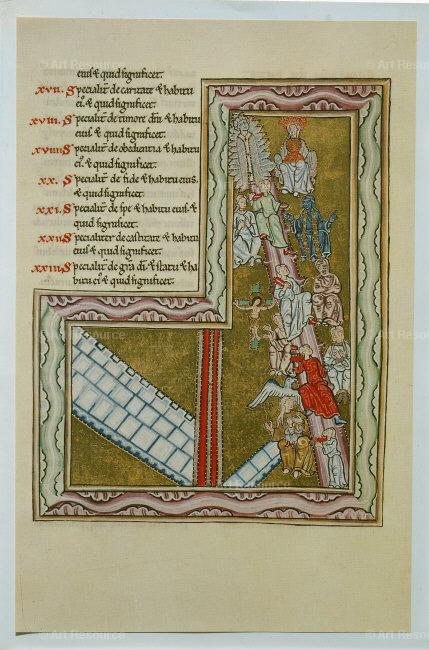 eius & quid significet.
xvii. Specialit̄ de caritate & habitu
ei᷒. & quid significet.
xviii. Specialit̄ de timore dn̄i & habitu
eius & quid significet.
xviiii Specialit̄ de obedientia & habitu
ei᷒. & quid significet.
xx. Specialit̄ de fide & habitu eius.
& quid significet.
xxi. Specialit̄ de spe & habitu eius. &
quid significet.
xxii Specialiter de castitate & habitu
eius & quid significet.
xxiii Specialit̄ de gr̄a dī & statu & ha
bitu ei᷒ & quid significet.
© Art Resource